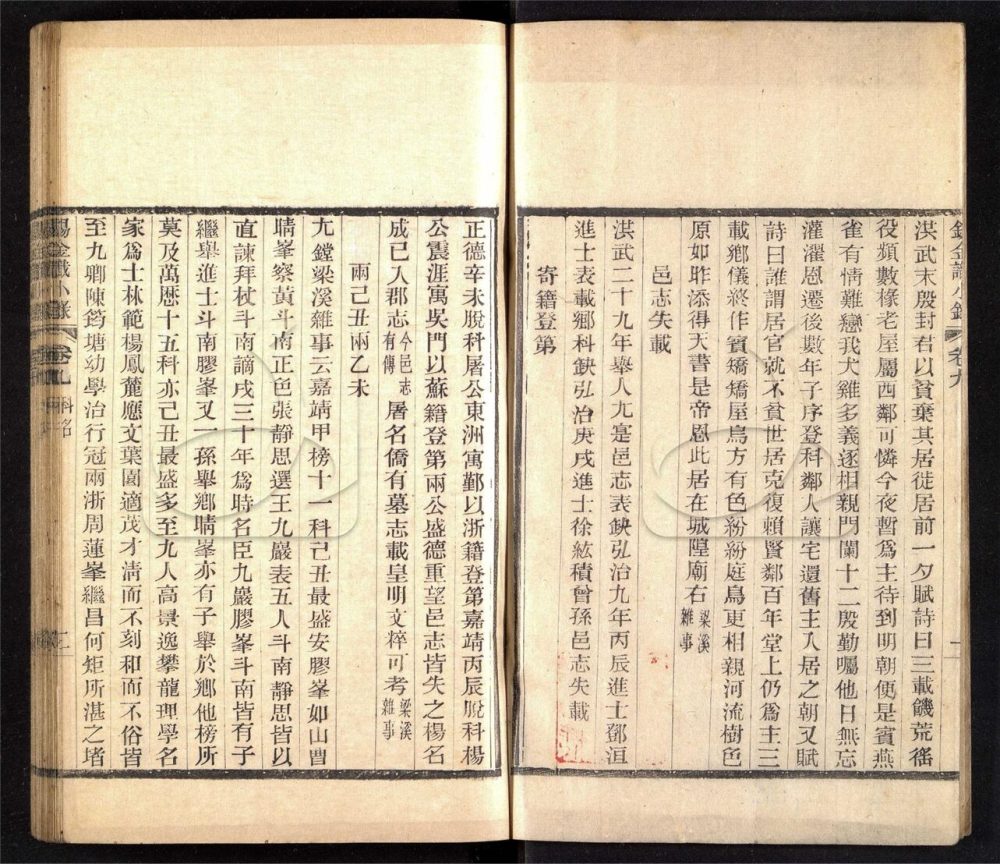 錫金識小錄 卷九
洪武末殷封君以貧棄其居徒居前一夕賦詩曰三載饑荒徭
役頻數椽老屋屬西鄰可憐今夜暫爲主待到明朝便是賓燕
雀有情難戀我犬雞多義逐相親門闌十二殷勤囑他日無忘
灌灌恩遷後數年子序登科鄰人讓宅還舊主入居之朝又賦
詩曰誰謂居官就不貧世居克復賴賢鄰百年堂上仍爲主三
載鄉儀終作賓矯矯屋烏方有色紛紛庭鳥更相親河流樹色
原如昨添得天書是帝恩此居在城隍廟右梁溪雜事
邑志失載
洪武二十九年舉人尢寔邑志表缺弘治九年丙辰進士鄧洹
進士表載鄉科缺弘治庚戌進士徐紘積曾孫邑志失載
寄籍登第
正德辛未脫科屠公東洲寓鄞以浙籍登第嘉靖丙辰脫科楊
公震涯寓吳門以蘇籍登第兩公盛德重望邑志皆失之楊名
成已入郡志今邑志有傳屠名僑有墓志載皇明文粹可考梁溪雜事
兩己丑兩乙未
尢鏜梁溪雜事云嘉靖甲榜十一科己丑最盛安膠峯如山曹
晴峯察黃斗南正色張靜思選王九巖表五人斗南靜思皆以
直諫拜杖斗南謫戌三十年爲時名臣九巖膠峯斗南皆有子
繼舉進士斗南膠峯又一孫舉鄉晴峯亦有子舉於鄉他榜所
莫及萬歷十五科亦己丑最盛多至九人高景逸攀龍理學名
家爲士林範楊鳳麓應文葉園適茂才清而不刻和而不俗皆
至九卿陳筠塘幼學治行冠兩浙周蓮峯繼昌何矩所湛之堵
錫金識小錄 卷九 科名